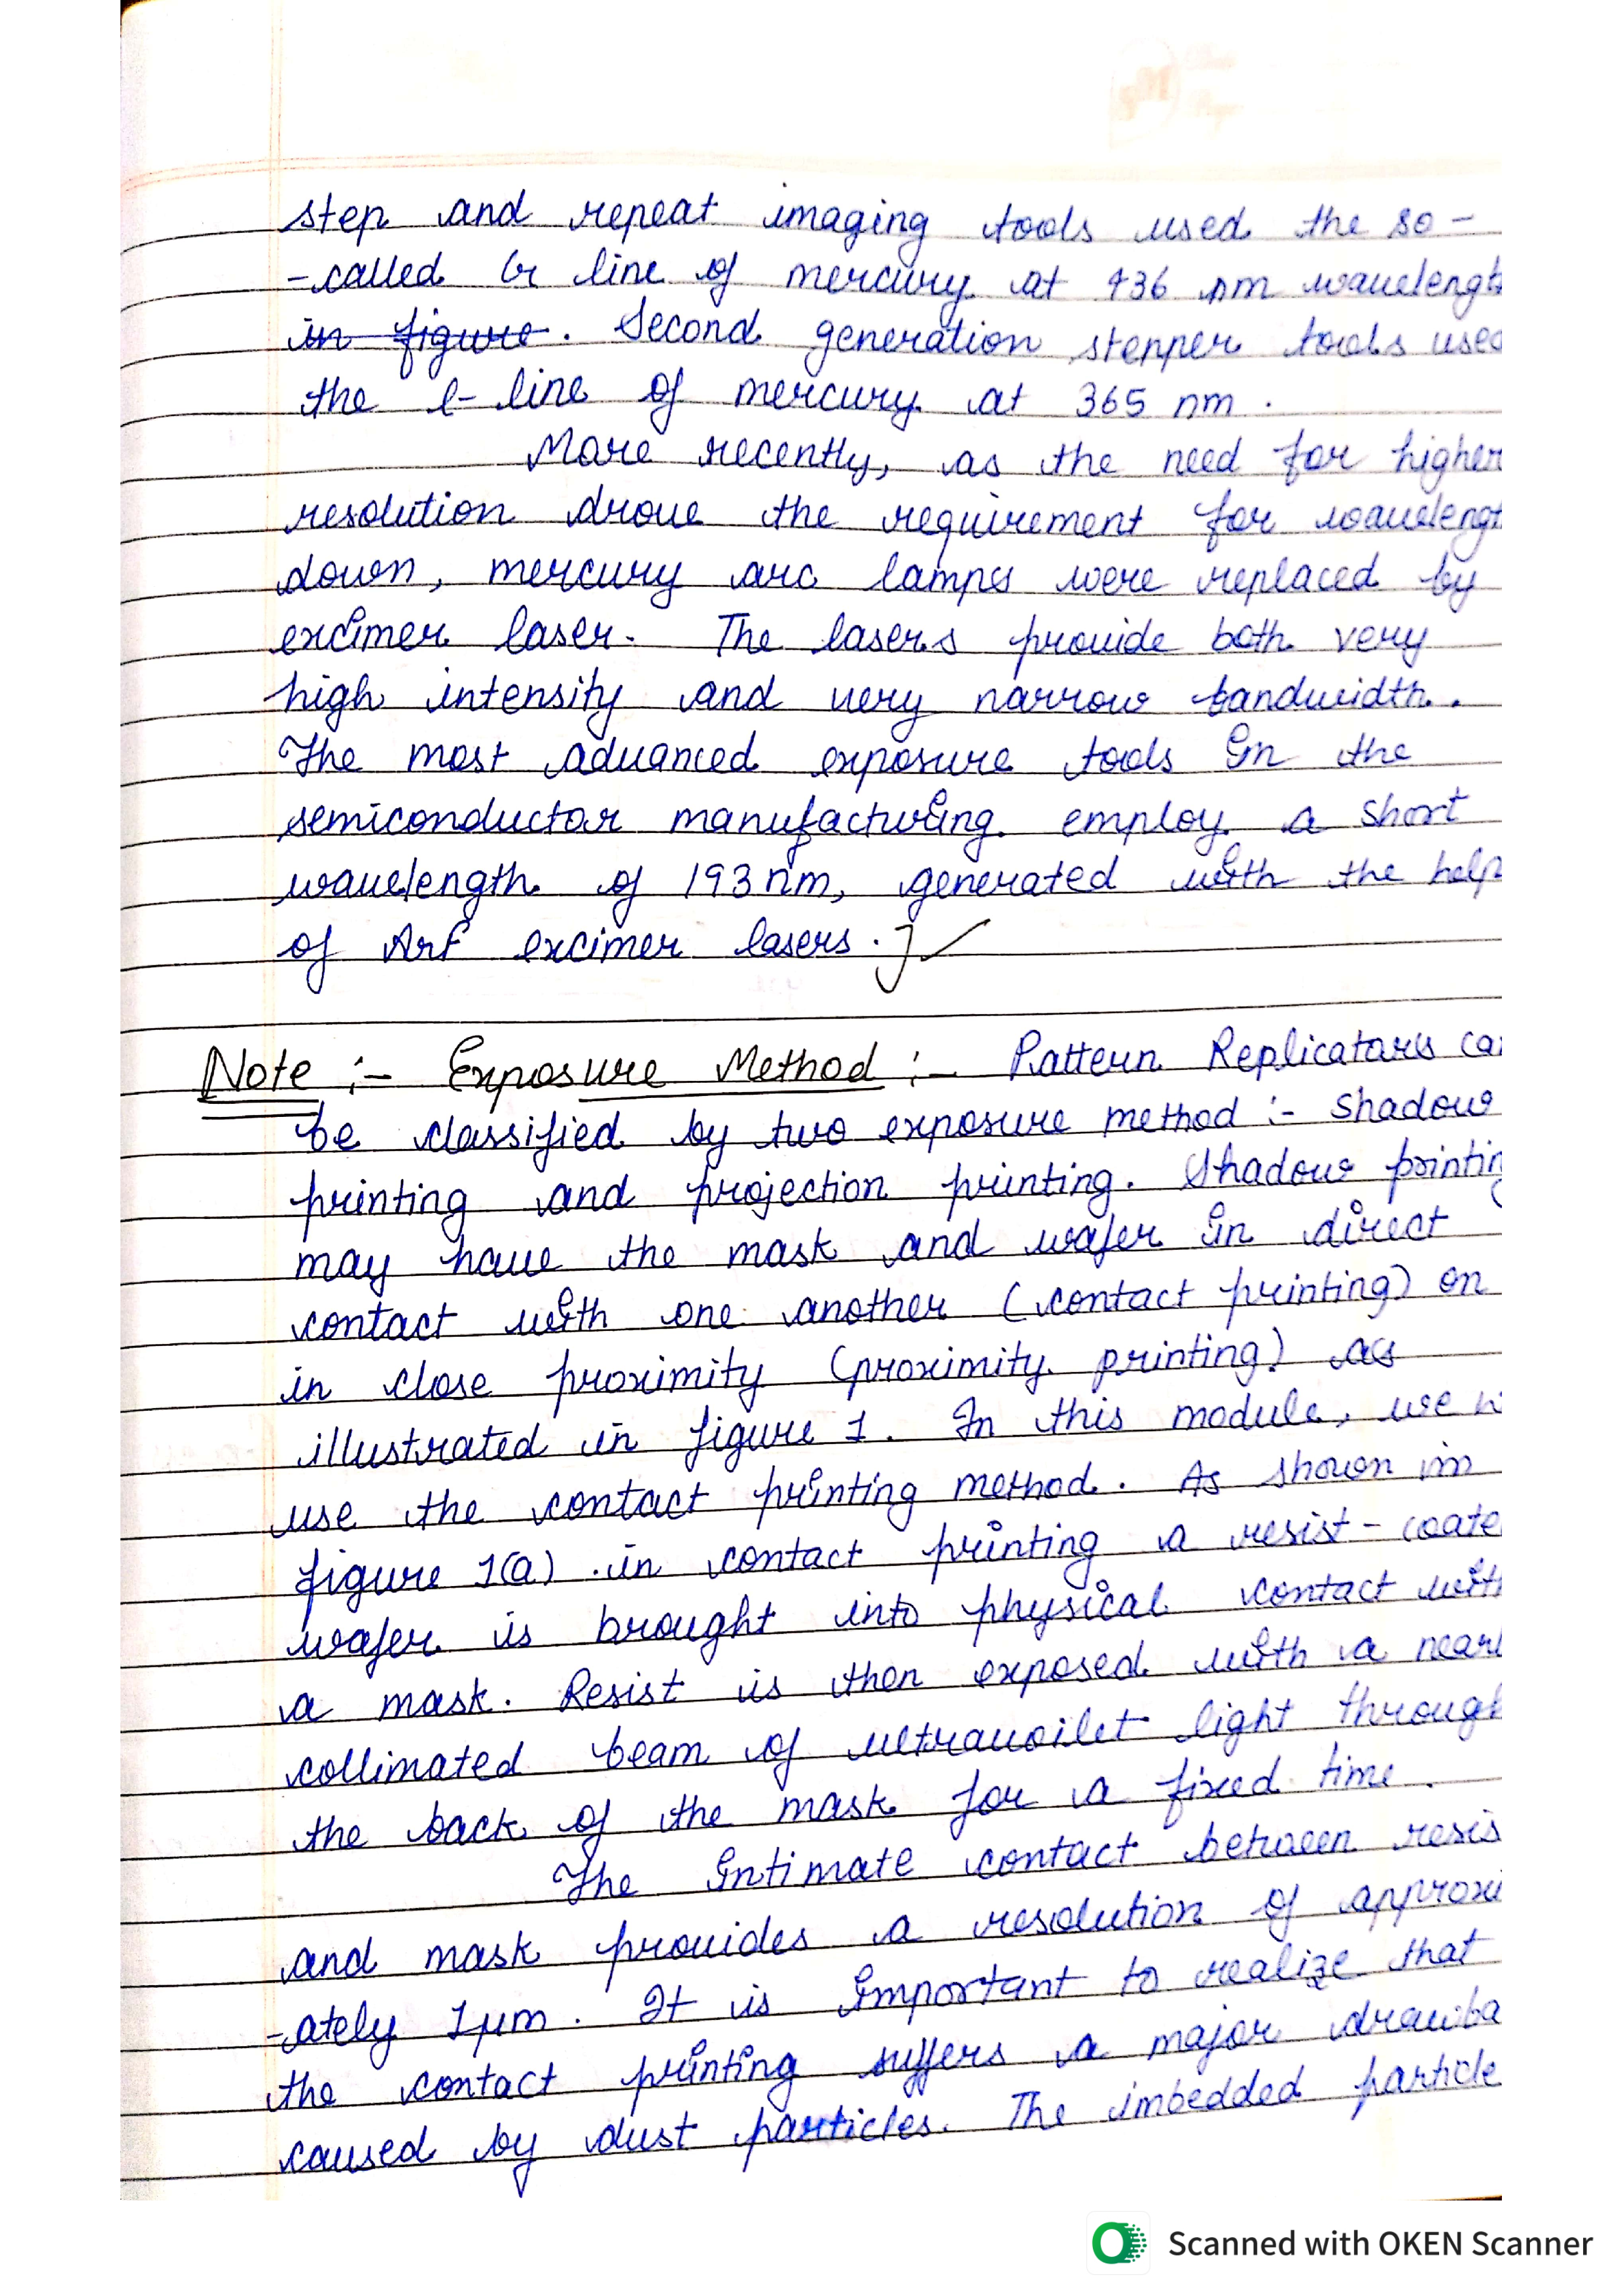 step and repeat imaging tools used the so-
-called G line of mercury at 436 nm wavelengt
in figure. Second generation stepper tools used
the l-line of mercury at 365 nm.
More recently, as the need for higher
resolution drove the requirement for wavelengt
down, mercury arc lamps were replaced by
excimer laser. The lasers provide both very
high intensity and very narrow bandwidth.
The most advanced exposure tools in the
semiconductor manufacturing employ a short
wavelength of 193 nm, generated with the help
of ArF excimer lasers.] ✓
Note :- Exposure Method :- Pattern Replicators ca
be classified by two exposure method :- Shadow
printing and projection printing. Shadow printin
may have the mask and wafer in direct
contact with one another (contact printing) on
in close proximity (proximity printing) as
illustrated in figure 1. In this module, we w
use the contact printing method. As shown in
figure 1(a) in contact printing a resist-coate
wafer is brought into physical contact with
a mask. Resist is then exposed with a nearl
collimated beam of ultravoilet light through
the back of the mask for a fixed time.
The intimate contact between resis
and mask provides a resolution of approxi
-ately 1μm. It is important to realize that
the contact printing suffers a major drawba
caused by dust particles. The imbedded particle
Scanned with OKEN Scanner